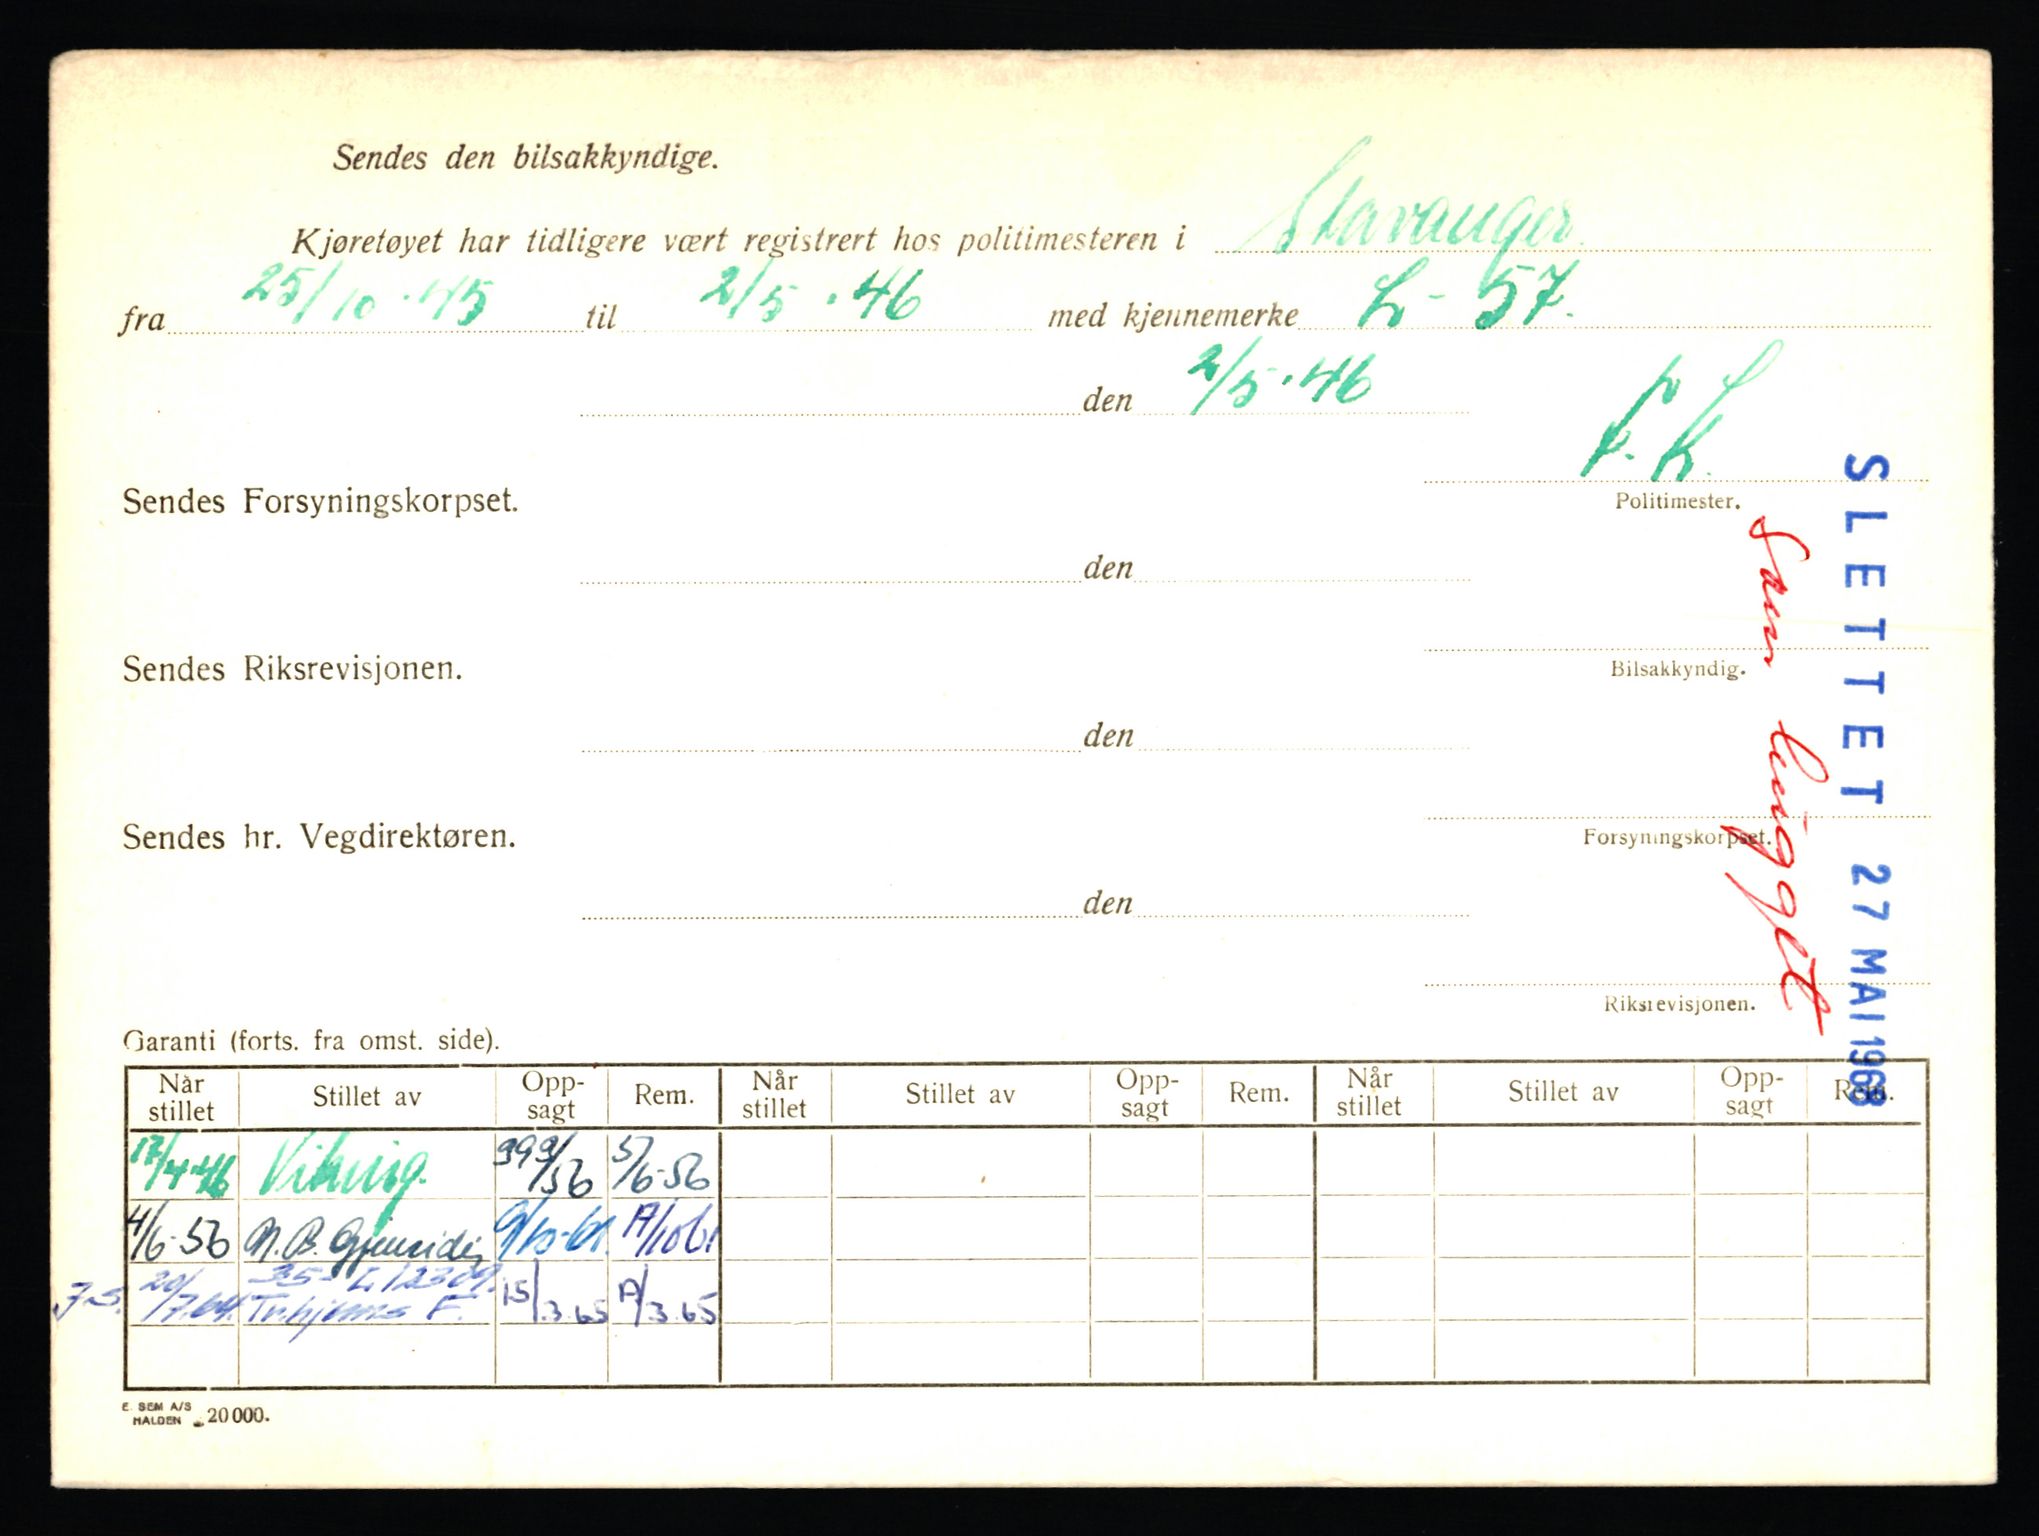 Sendes den bilsakkyndige.
Kjøretøyet har tidligere vært registrert hos politimesteren i Stavanger
fra 25/10.45 til 2/5.46 med kjennemerke L - 57.
den 2/5.46
Politimester.
Sendes Forsyningskorpset.
den
Bilsakkyndig.
Sendes Riksrevisjonen.
den
Forsyningskorpset.
Sendes hr. Vegdirektøren.
den
Riksrevisjonen.
SLETTET 27 MAI 1968
Garanti (forts. fra omst. side).
Når stillet Stillet av Opp-sagt Rem. Når stillet Stillet av Opp-sagt Rem. Når stillet Stillet av Opp-sagt Rem.
17/4-46 Viking. 5/6-56
4/6-56 N. B. Gjensidig 9/10-61. A/10 61
J.S. 20/7.64. 35- L 12309. 15/.3.65 A/3.65
E. SEM A/S
HALDEN 20 000.